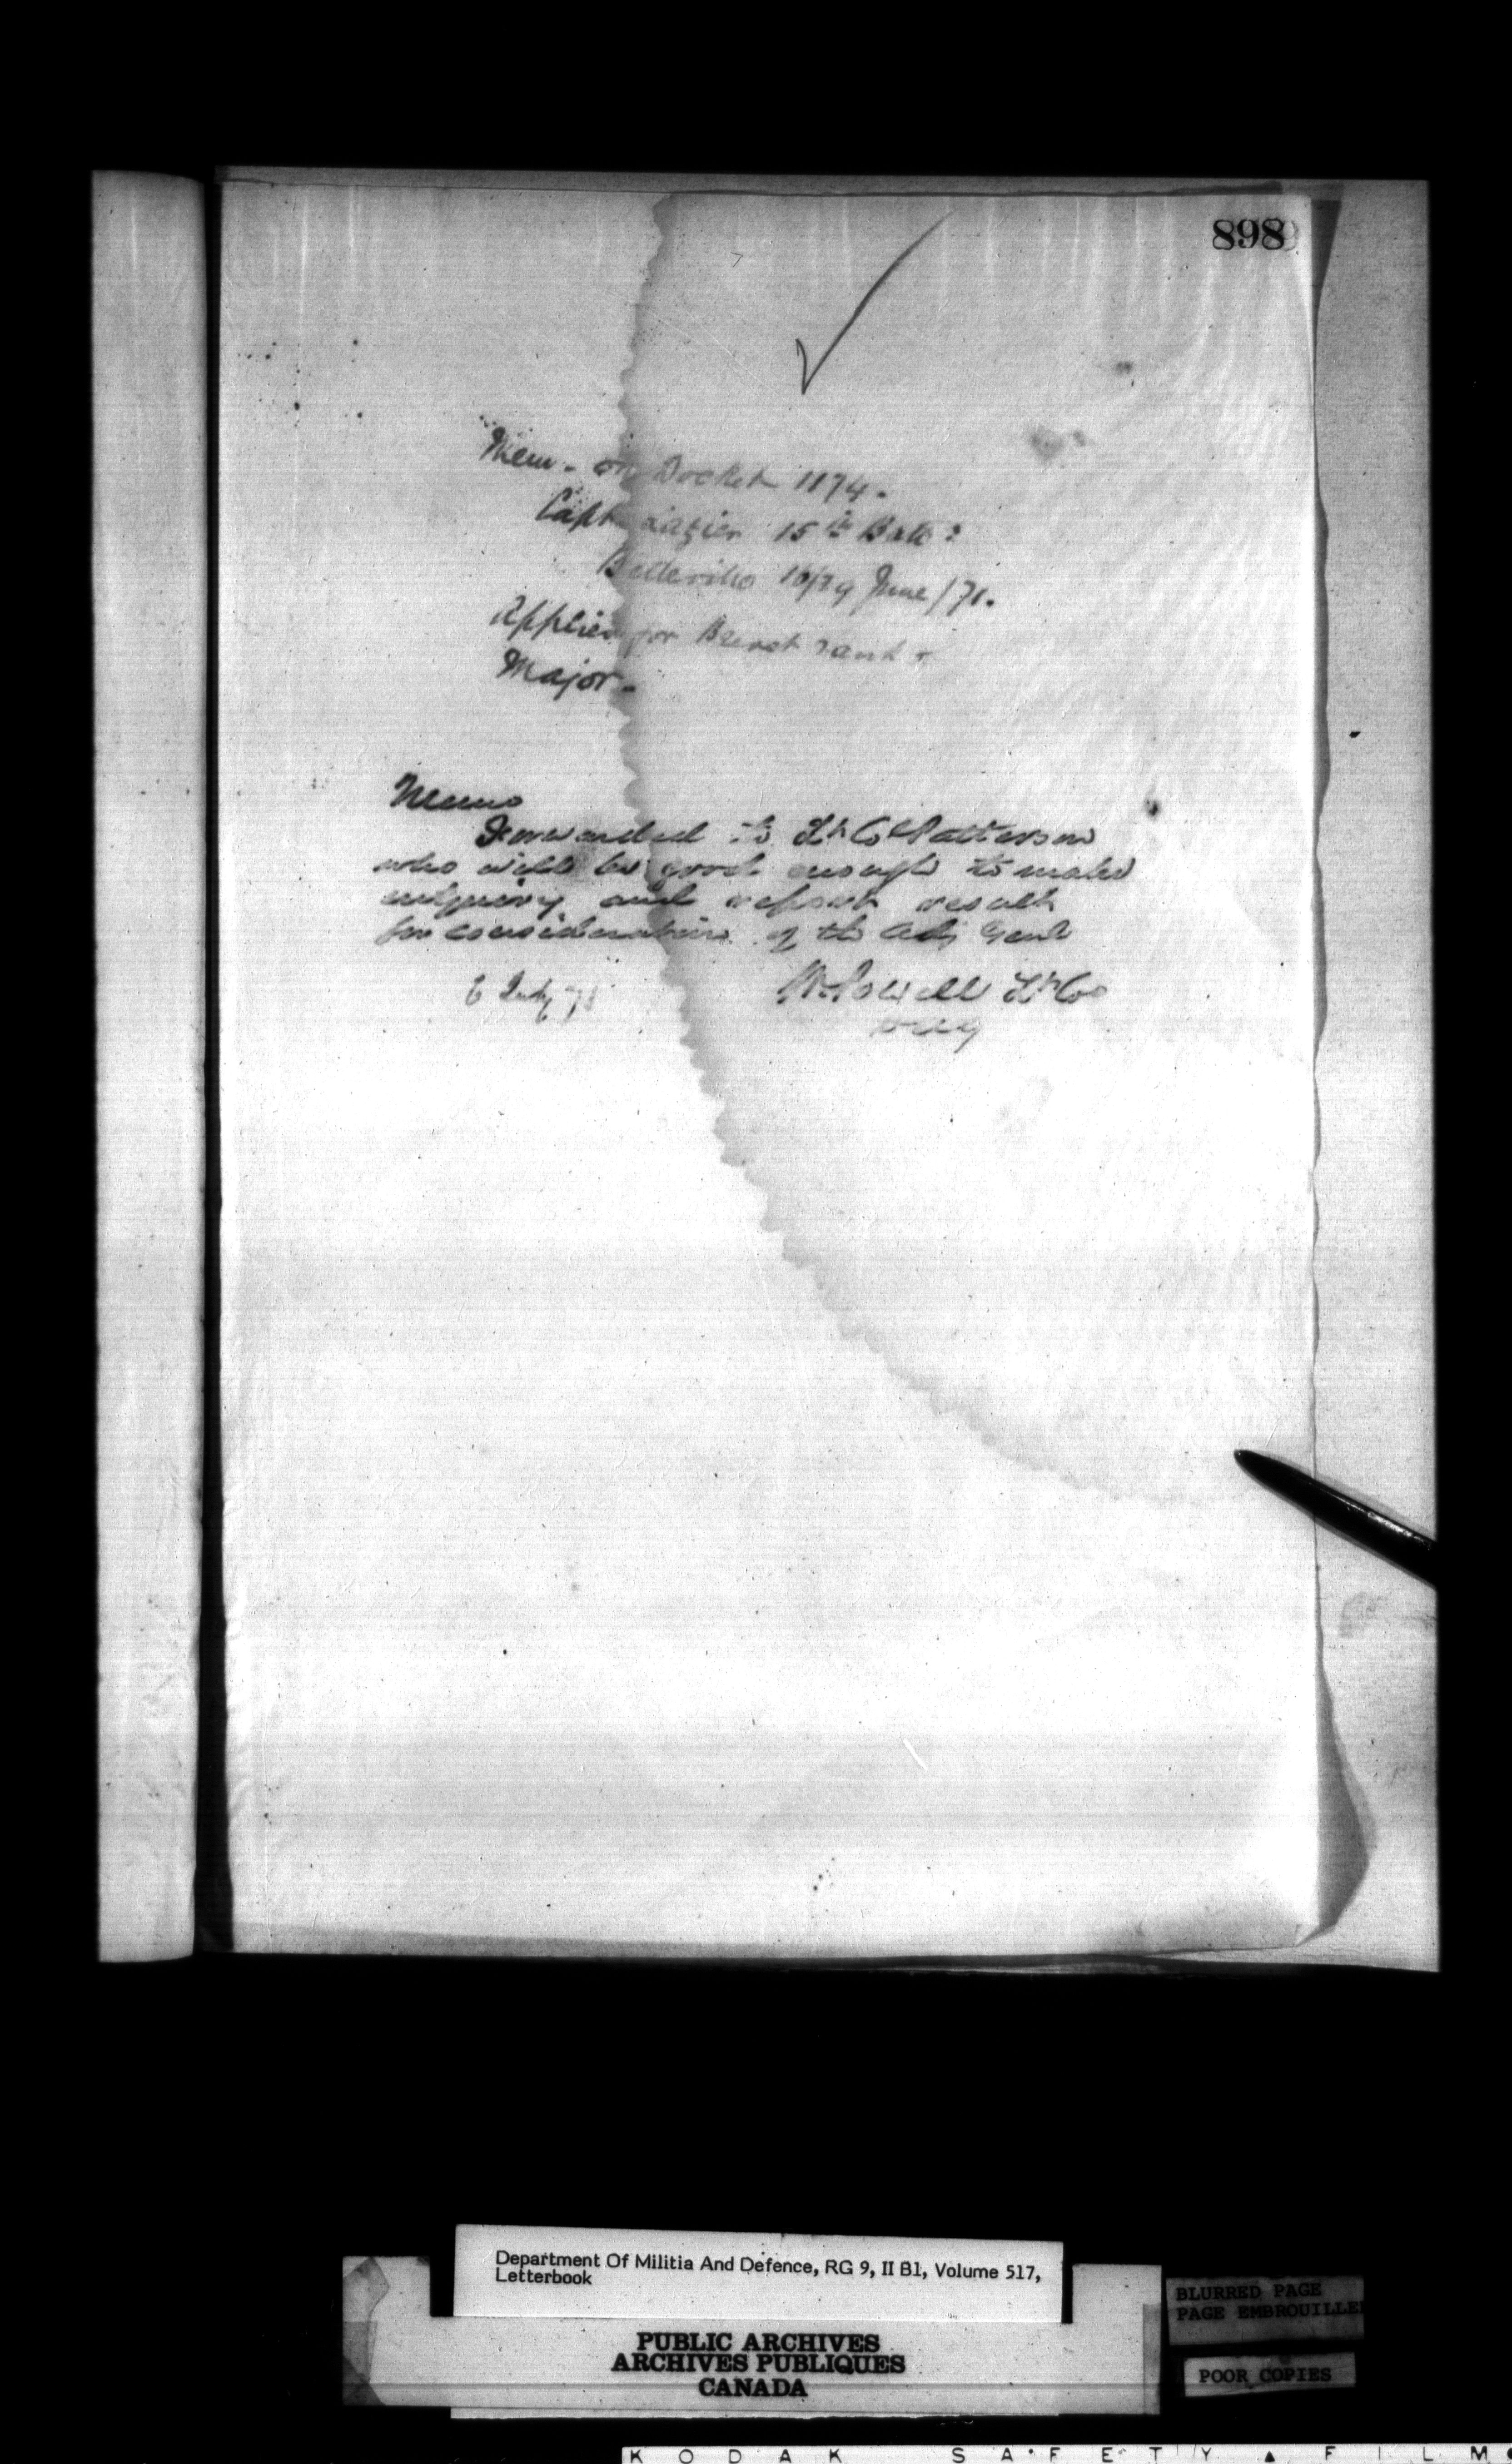 898
Mem. on Docket 1174.
Capt Lazier 15th Batt:
Belleville June /71.
Applied for Brevet rank
Major.
Memo
Forwarded to Lt Col Patterson
who will be good enough to make
enquiry and report result
for consideration of the Adj Genl
6 July 71
W. Powell Lt Col
DAG
Department Of Militia And Defence, RG 9, II B1, Volume 517,
Letterbook
BLURRED PAGE
PAGE EMBROUILLE
PUBLIC ARCHIVES
ARCHIVES PUBLIQUES
CANADA
POOR COPIES
KODAK SAFETY ▲ FILM